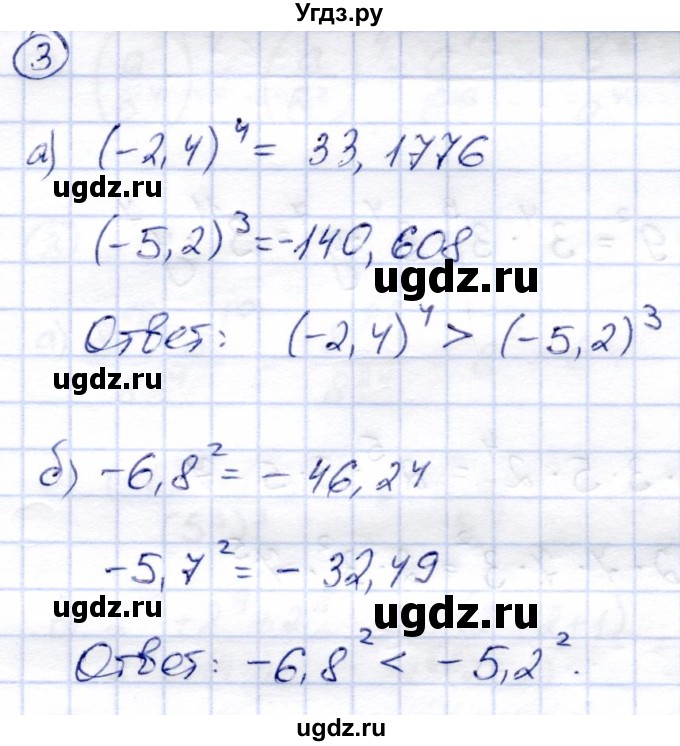 Угдз.ру
3
а) (-2,4)⁴ = 33,1776
ugdz.ru
(-5,2)³ = -140,608
ugdz.ru
Ответ: (-2,4)⁴ > (-5,2)³
ugdz.ru
б) -6,8² = - 46,24
-5,7² = - 32,49
ugdz.ru ugdz.ru
Ответ: -6,8² < -5,2².
ugdz.ru